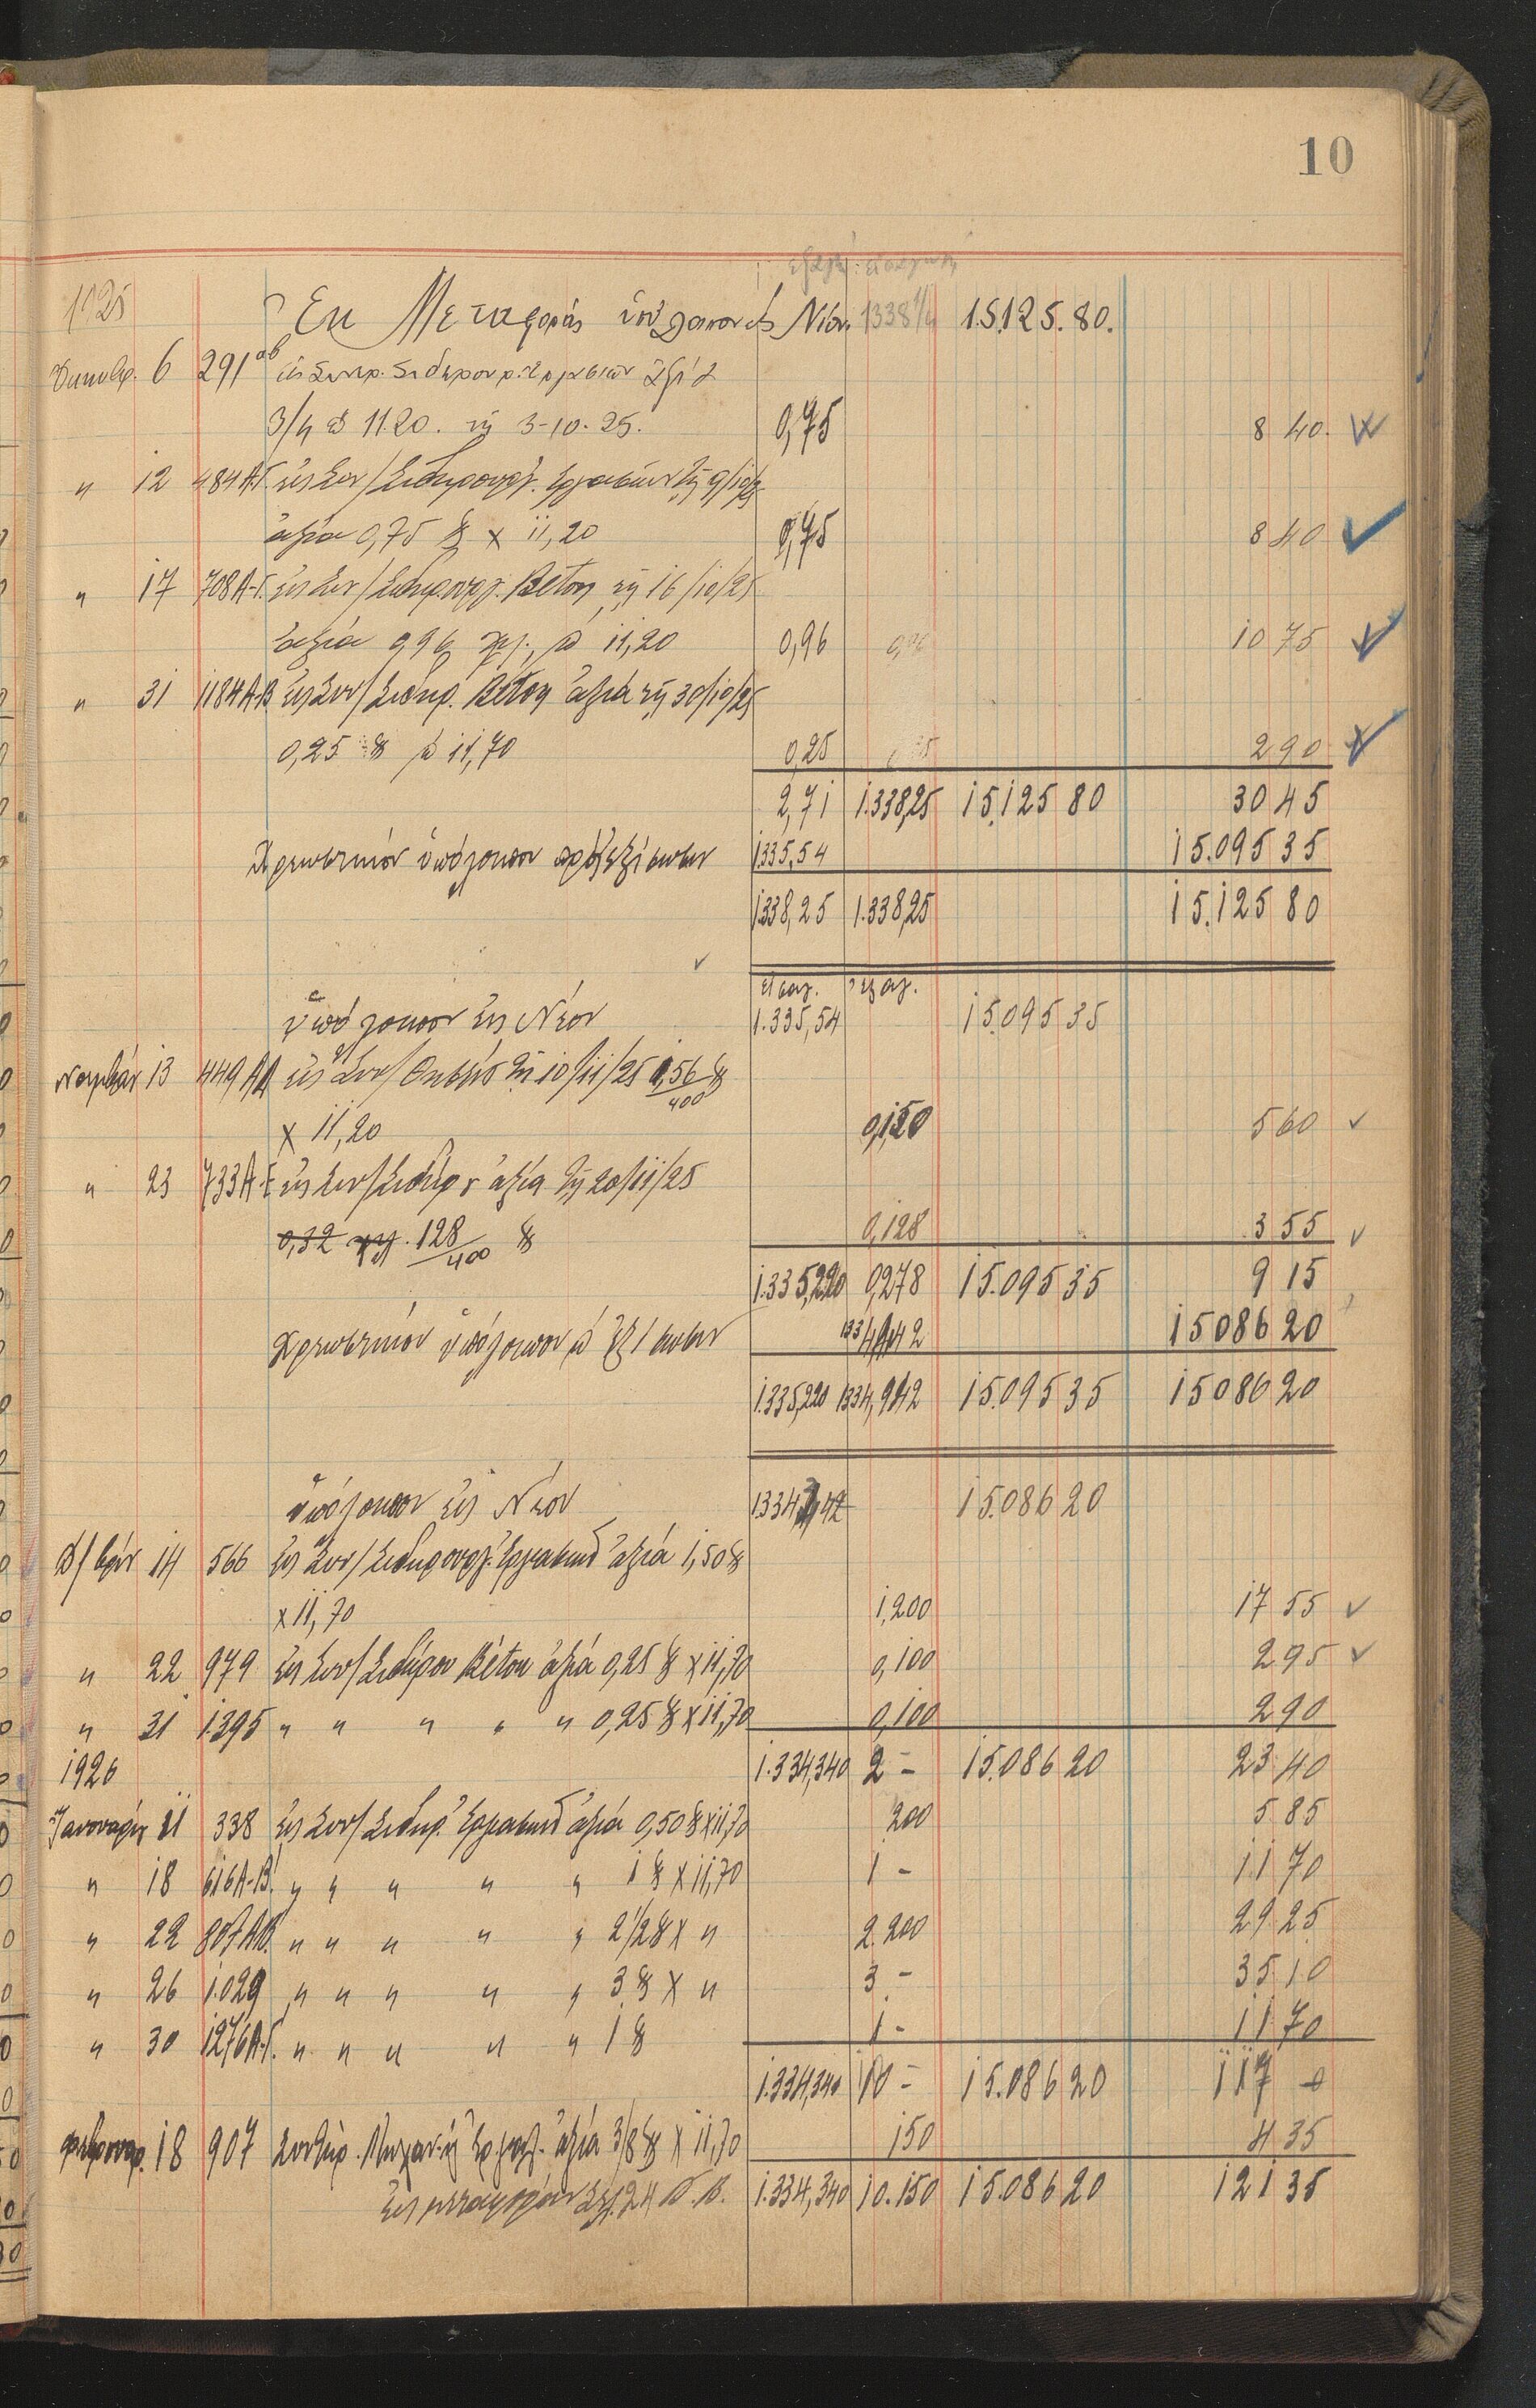 10
1925
Ἐκ Μεταφορᾶς ὑπόλοιπον εἰς Νέον 1338 1/4 15.125.80.
Ὀκτωβρ. 6 291 αβ εἰς Συντ. Σιδηρουρ. Ἐργασιῶν ἀξία
3/4 @ 11.20. τῇ 3-10-25. 0,75 8 40.
" 12 484 Α-Γ. εἰς Συν/ Σιδηρουργ. Ἐργασιῶν τῇ 9/10/25
ἀξία 0,75 × 11,20 0,75 8 40
" 17 708 Α-Γ. εἰς Συν/ Σιδηρουργ. Βέτον τῇ 16/10/25
ἀξία 0,96 @ 11,20 0,96 10 75
" 31 1184 Α-Β εἰς Συν/ Σιδηρ. Βέτον ἀξία τῇ 30/10/25
0,25 @ 11,70 0,25 2 90
2,71 1.338,25 15.125 80 30 45
Χρεωστικὸν ὑπόλοιπον πρὸς ἐξίσωσιν 1335,54 15.095 35
1338,25 1.338,25 15.125 80
εἰσαγ. ἐξαγ.
ὑπόλοιπον εἰς Νέον 1.335,54 15.095 35
Νοεμβρίου 13 449 ΑΔ εἰς Συν/ τῇ 10/11/25 56/400
× 11,20 0,150 5 60
" 23 733 Α-Γ εἰς Συν/ Σιδήρου ἀξία τῇ 20/11/25
0,32 χγ. 128/400 0,128 3 55
1.335,220 0,278 15.095 35 9 15
Χρεωστικὸν ὑπόλοιπον @ ἐξίσωσιν 1334,942 15086 20
1.335,220 1334,942 15.095 35 15086 20
ὑπόλοιπον εἰς Νέον 1334,342 15.086 20
Δ/βρίου 14 566 εἰς Συν/ Σιδηρουργ. Ἐργασιῶν ἀξία 1,50
× 11,70 1,200 17 55
" 22 979 εἰς Συν/ Σιδήρου Βέτον ἀξία 0,25 × 11,70 0,100 2 95
" 31 1.395 " " " " " 0,25 × 11,70 0,100 2 90
1926 1.334,340 2 – 15.086 20 23 40
Ἰανουαρίου 11 338 εἰς Συν/ Σιδηρ. Ἐργασιῶν ἀξία 0,50 × 11,70 200 5 85
" 18 616 Α-Β. " " " " " 1 × 11,70 1 – 11 70
" 22 807 ΑΒ. " " " " " 2 1/2 × " 2.200 29 25
" 26 1.029 " " " " " 3 × " 3 – 35 10
" 30 1276 Α-Γ. " " " " " 1 1 – 11 70
1.334,340 10 – 15.086 20 117 0
Φεβρουαρ. 18 907 ἀξία 3/8 × 11,70 150 4 35
Εἰς μεταφορὰν Σελ. 24 Β. Β. 1.334,340 10.150 15.086 20 121 35